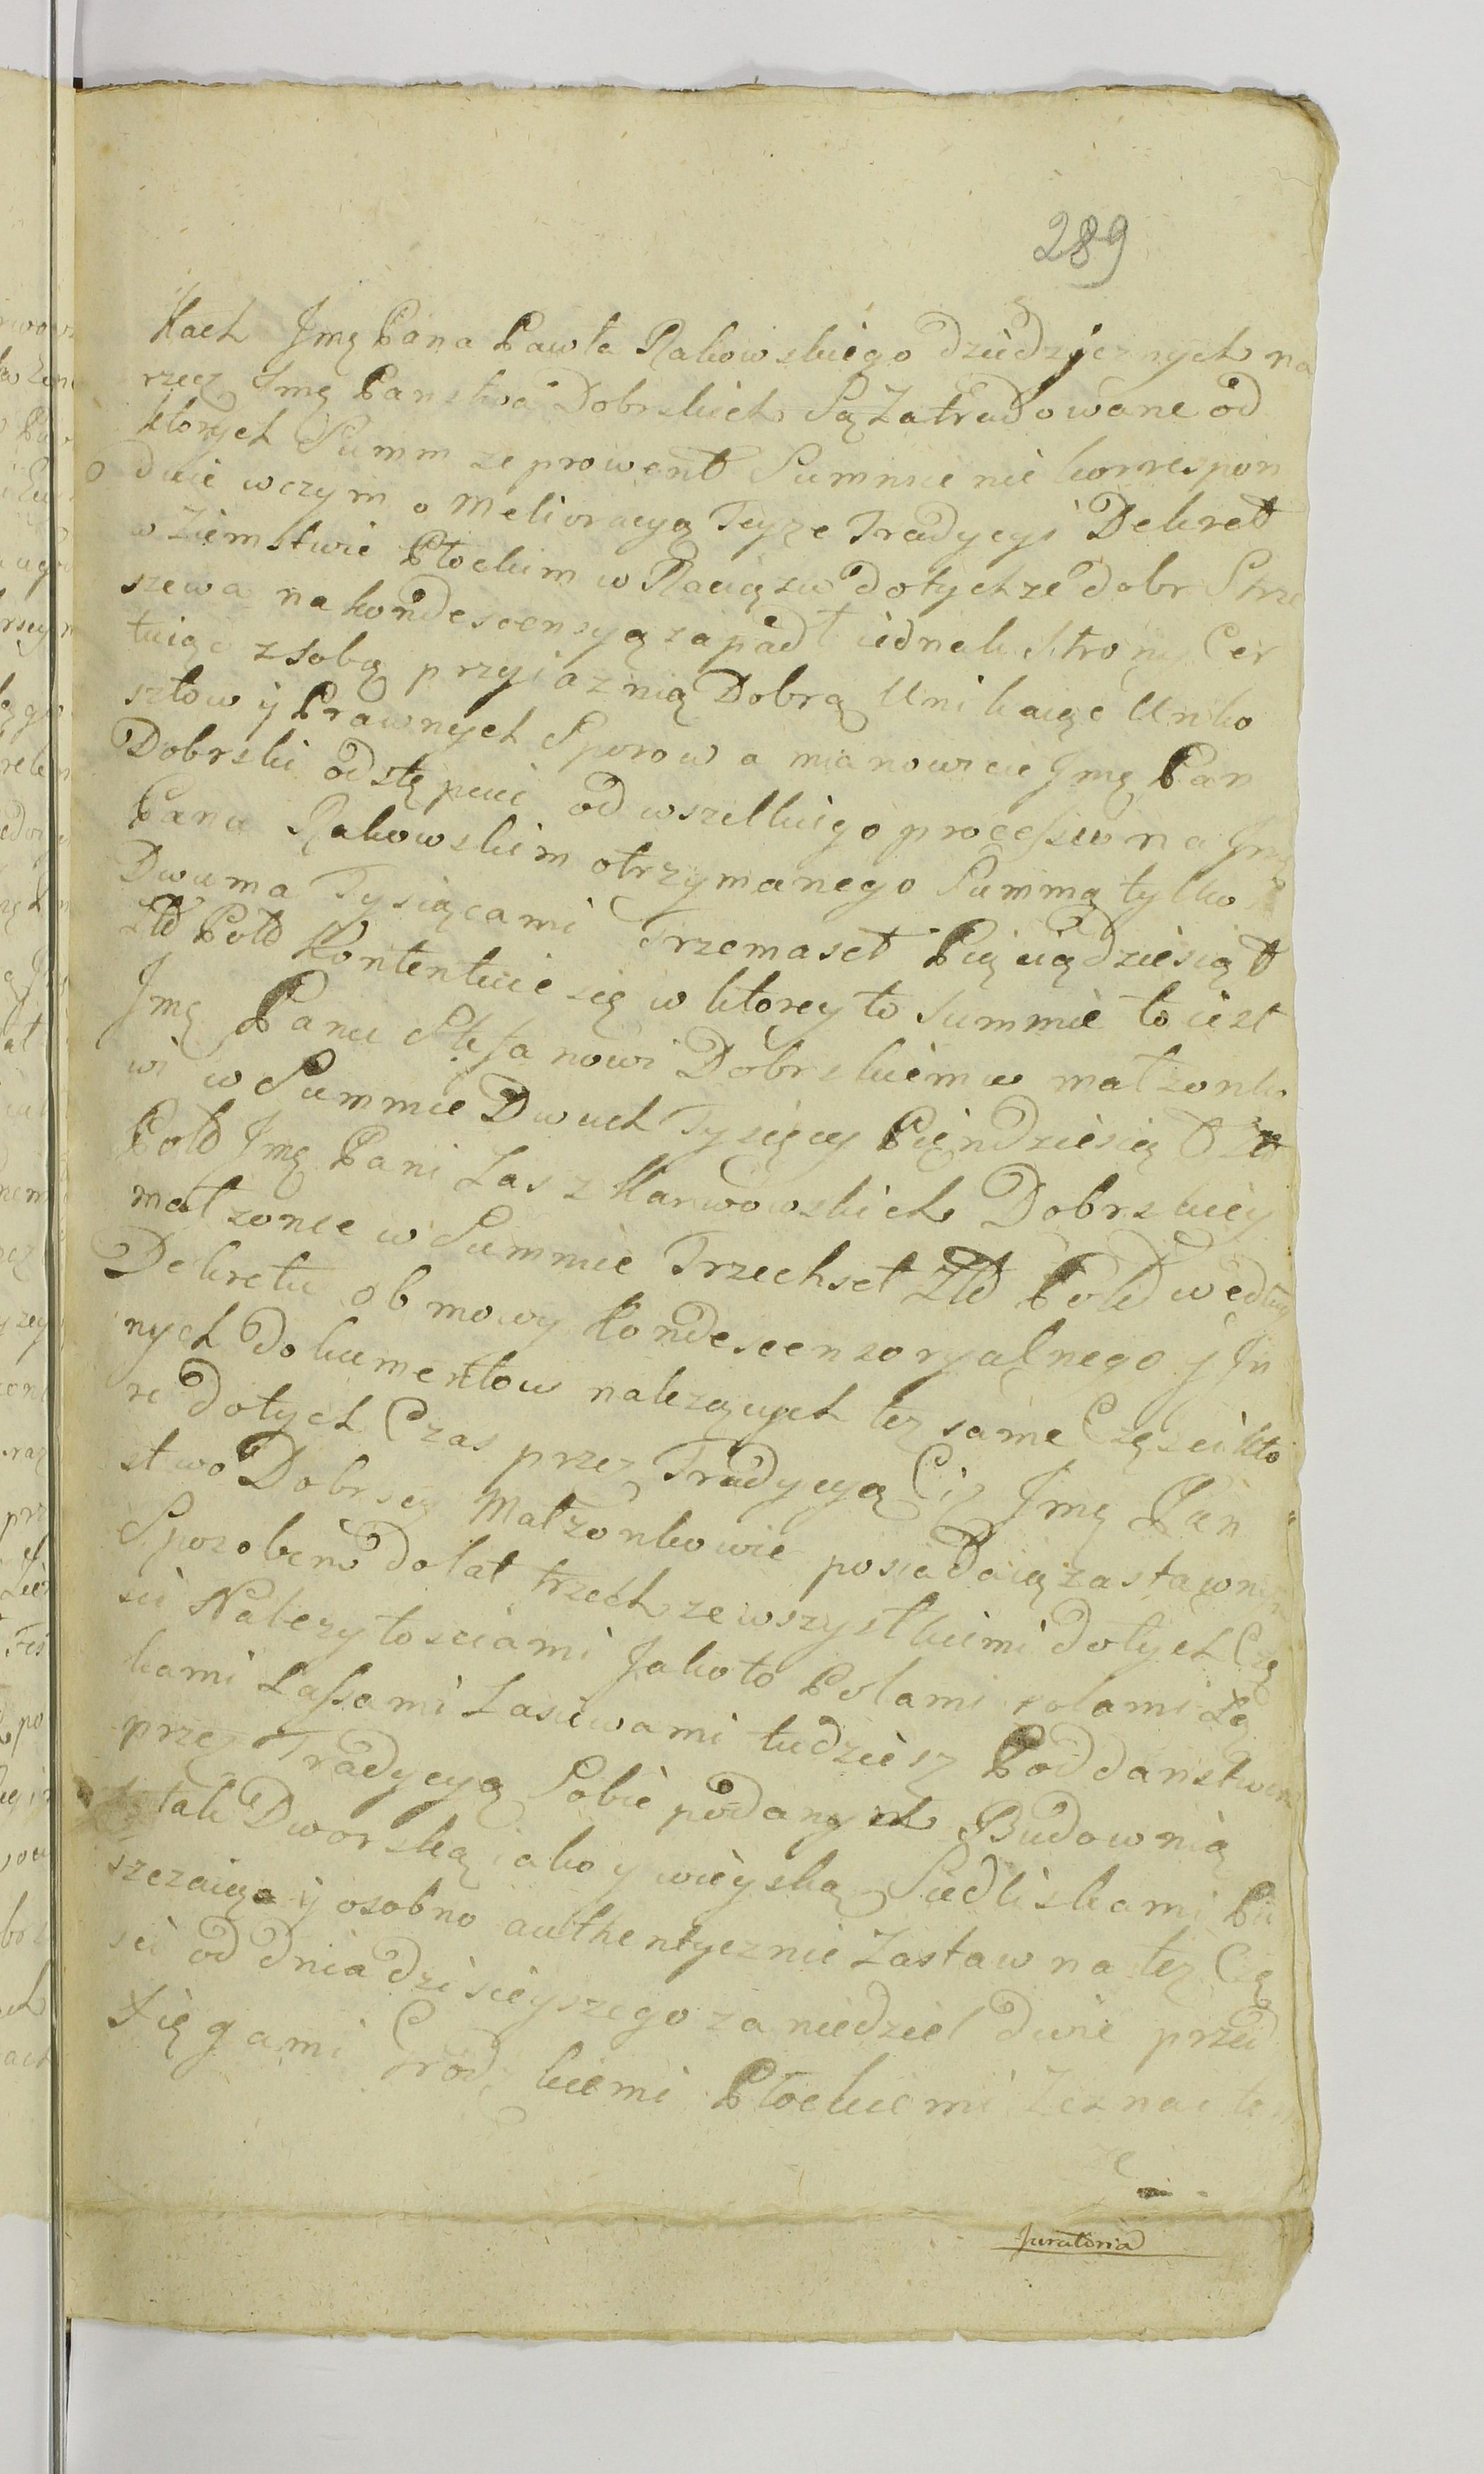 289
kach Jmę Pana Pawła Rakowskiego dziedzicznych na
rzecz Jmę Panstwa Dobrskich Są Zatradowane od
ktorych Summ ze prowent Summie nie korrespon
duie w czym o Melioracyą Teyze Tradycyi Dekret
w Ziemstwie Płockim w Raciązu dotychze dobr Strze
szewa na kondescensyą zapadł iednak Strony Cer
tuiąc z sobą przyiaznią Dobrą Unikaiąc Unko
sztow y Prawnych Sporow a mianowicie Jmę Pan
Dobrski odstępuie od wszelkiego processu na Jmę
Panu Rakowskim otrzymanego Summą tylko
Dwuma Tysiącami Trzemaset Pięciądziesiąt
Złł Poll Kontentuie się w ktorey to Summie to iest
Jmę Panu Stefanowi Dobrskiemu małzonko
wi w Summie Dwuch Tysięcy Pięndziesiąt Zł
Poll Jmę Pani Zas z Karwowskich Dobrskiey
małzonce w Summie Trzechset Złł Poll według
Dekretu obmowy Kondescensoryalnego y In
nych dokumentow nalezących tez same Części kto
re dotych Czas przez Tradycyą Ciz Jmę Pan
stwo Dobrscy Małzonkowie posiadaią zastawnym
Sposobem do lat trzech ze wszystkiemi dotych Czę
sci Nalezytosciami Jako to Polami rolami Łą
kami Lassami Zasiewami tudziesz Poddanstwem
przez Tradycyą Sobie podanych Budownią
tak Dworską iako y wieyską Siedliskami Pu
szczaiąc y osobno authentycznie Zastaw na tez Czę
sci od dnia dzisieyszego za niedziel dwie przed
Xięgami Grodzkiemi Płockiemi Zeznac
Juratoria